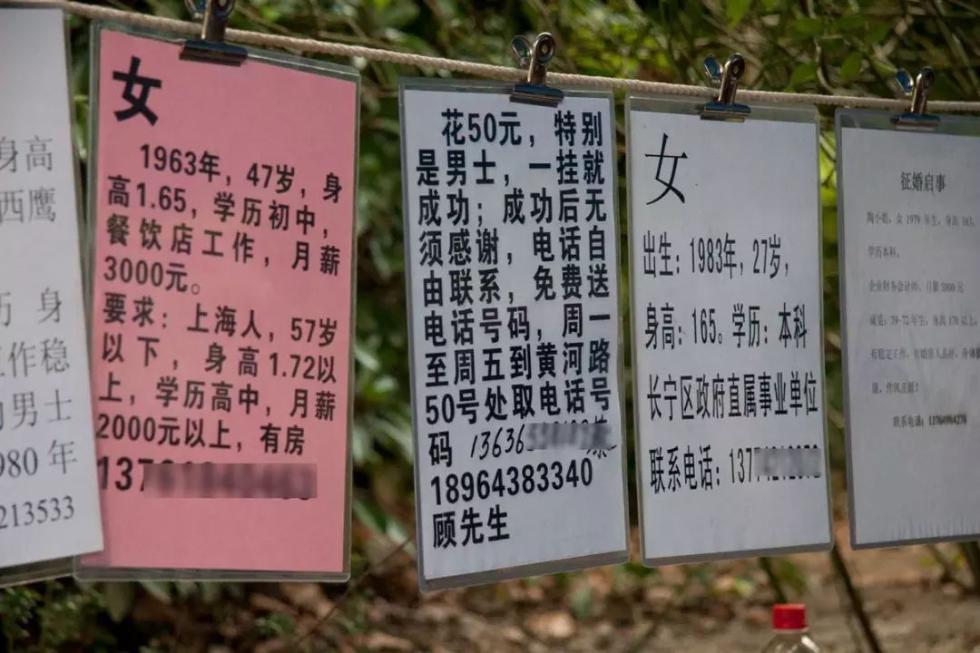 身高
西鹰
历 身
工作稳
的男士
980年
213533
女
1963年，47岁，身
高1.65，学历初中，
餐饮店工作，月薪
3000元。
要求：上海人，57岁
以下，身高1.72以
上，学历高中，月薪
2000元以上，有房
137
花50元，特别
是男士，一挂就
成功；成功后无
须感谢，电话自
由联系，免费送
电话号码，周一
至周五到黄河路
50号处取电话号
码 13636
18964383340
顾先生
女
出生：1983年，27岁，
身高：165。学历：本科
长宁区政府直属事业单位
联系电话：137
征婚启事
陶小姐，女 1979 年生，身高 163，
学历本科，
企业财务会计师，月薪 5000 元
诚觅：70-72 年生，身高 170 以上，
有稳定工作，有婚房人品好，身体健
康，作风正派！
联系电话：